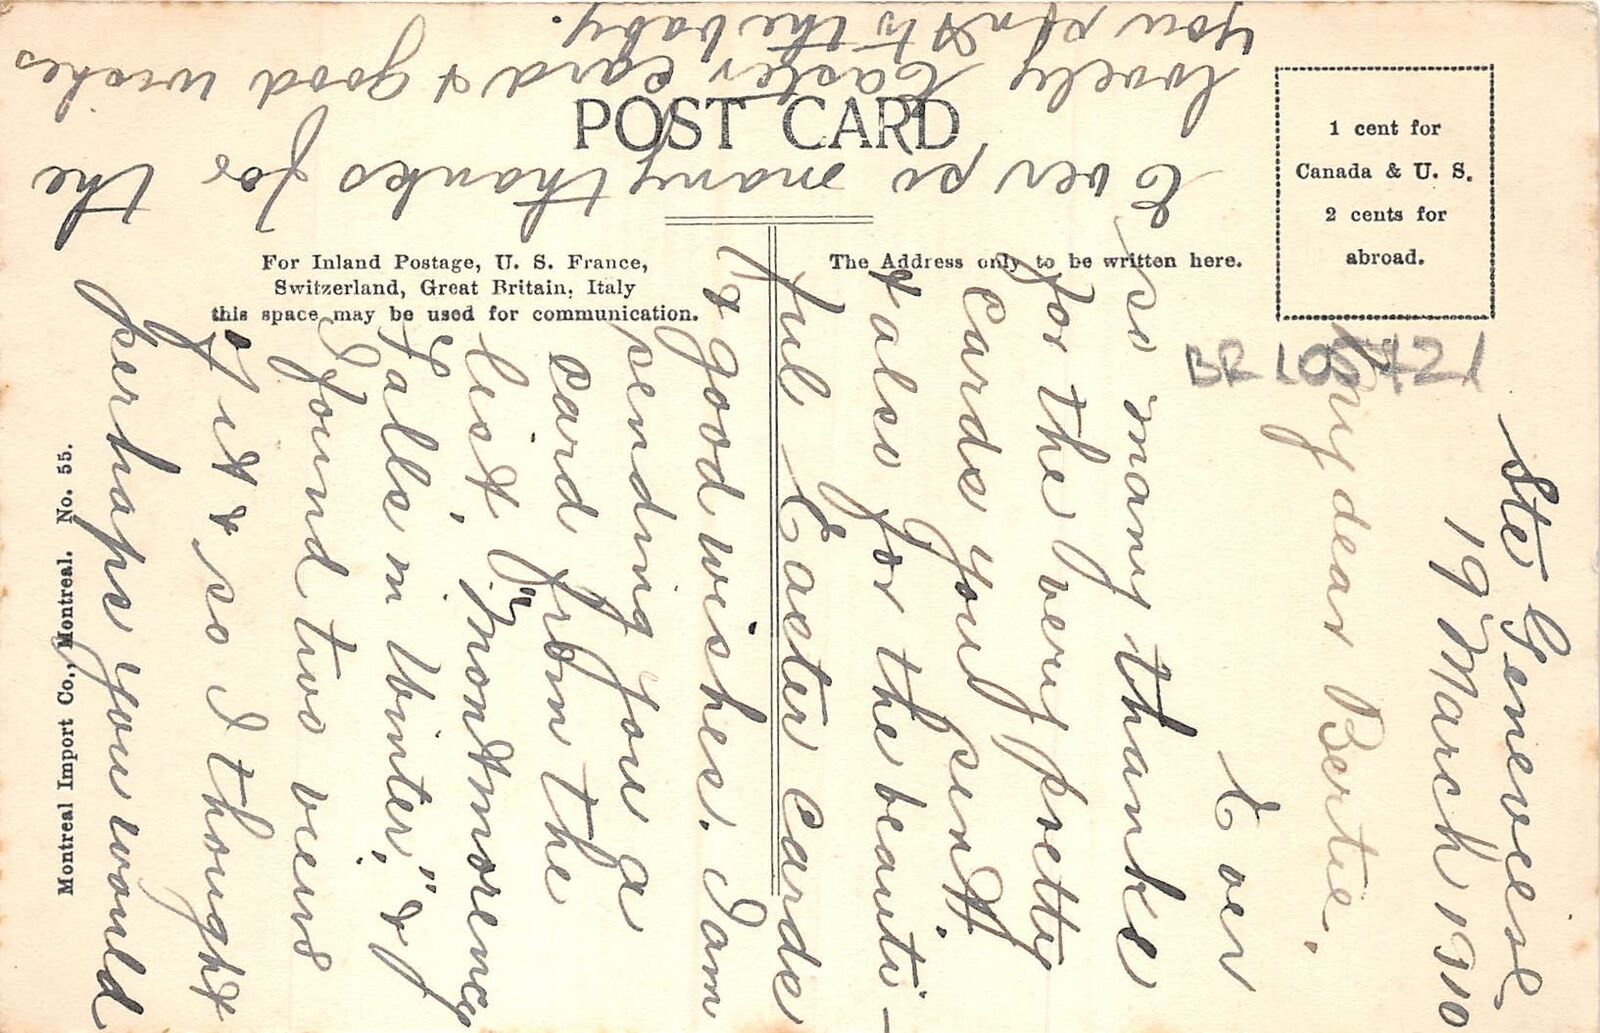 POST CARD
1 cent for
Canada & U. S.
2 cents for
abroad.
For Inland Postage, U. S. France,
Switzerland, Great Britain, Italy
this space may be used for communication.
The Address only to be written here.
Montreal Import Co., Montreal. No. 55.
BR 105421
Ste Genevieve
19 March 1910
My dear Bertie,
Ever
so many thanks
for the very pretty
cards you sent.
& also for the beauti-
ful Easter cards
& good wishes. I am
sending you a
card from the
list, "Montmorency
Falls in Winter," &
I found two views
of it & so I thought
perhaps you would
Ever so many thanks for the
lovely Easter card & good wishes
you sent to the baby.